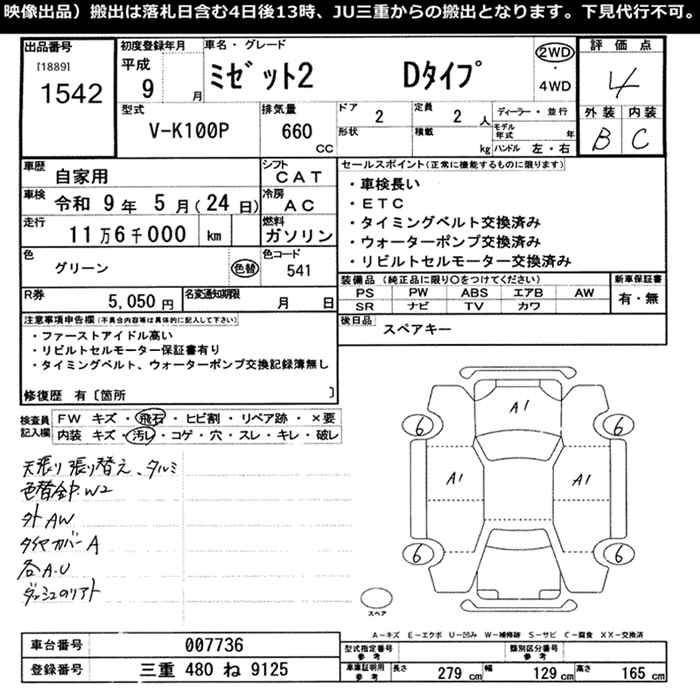 映像出品）搬出は落札日含む4日後13時、JU三重からの搬出となります。下見代行不可。
出品番号
[1889]
1542
初度登録年月
平成
9 月
車名・グレード
ミゼット2 Dタイプ
2WD
・
4WD
評価点
4
外装 内装
B C
型式
V-K100P
排気量
660
CC
ドア 2
形状
定員 2 人
積載 kg
ディーラー・並行
モデル年式 年
ハンドル 左・右
車歴
自家用
シフト
CAT
車検 令和 9 年 5 月(24 日)
冷房
AC
走行
11万6千000 km
燃料
ガソリン
色
グリーン
色替
色コード
541
R券
5,050円
名変通知期限
月 日
セールスポイント(正常に機能するものに限ります)
・車検長い
・ETC
・タイミングベルト交換済み
・ウォーターポンプ交換済み
・リビルトセルモーター交換済み
装備品(純正品に限り○をつけてください)
PS PW ABS エアB AW
SR ナビ TV カワ
新車保証書
有・無
後日品 スペアキー
注意事項申告欄(不具合内容等は具体的に記入して下さい)
・ファーストアイドル高い
・リビルトセルモーター保証書有り
・タイミングベルト、ウォーターポンプ交換記録簿無し
修復歴 有〔箇所 〕
検査員記入欄
FW キズ・飛石・ヒビ割・リペア跡・×要
内装 キズ・汚レ・コゲ・穴・スレ・キレ・破レ
天張り張り替え、タルミ
色替全P.W2
外AW
タイヤカバーA
各A.U
ダッシュのリアト
A1
6 6
A1 A1
6 6
スペア
A-キズ E-エクボ U-凹み W-補修跡 S-サビ C-腐食 XX-交換済
車台番号 007736
登録番号 三重 480 ね 9125
型式指定番号
参考
類別区分番号
参考
車庫証明用
参考
長さ 279 cm 幅 129 cm 高さ 165 cm